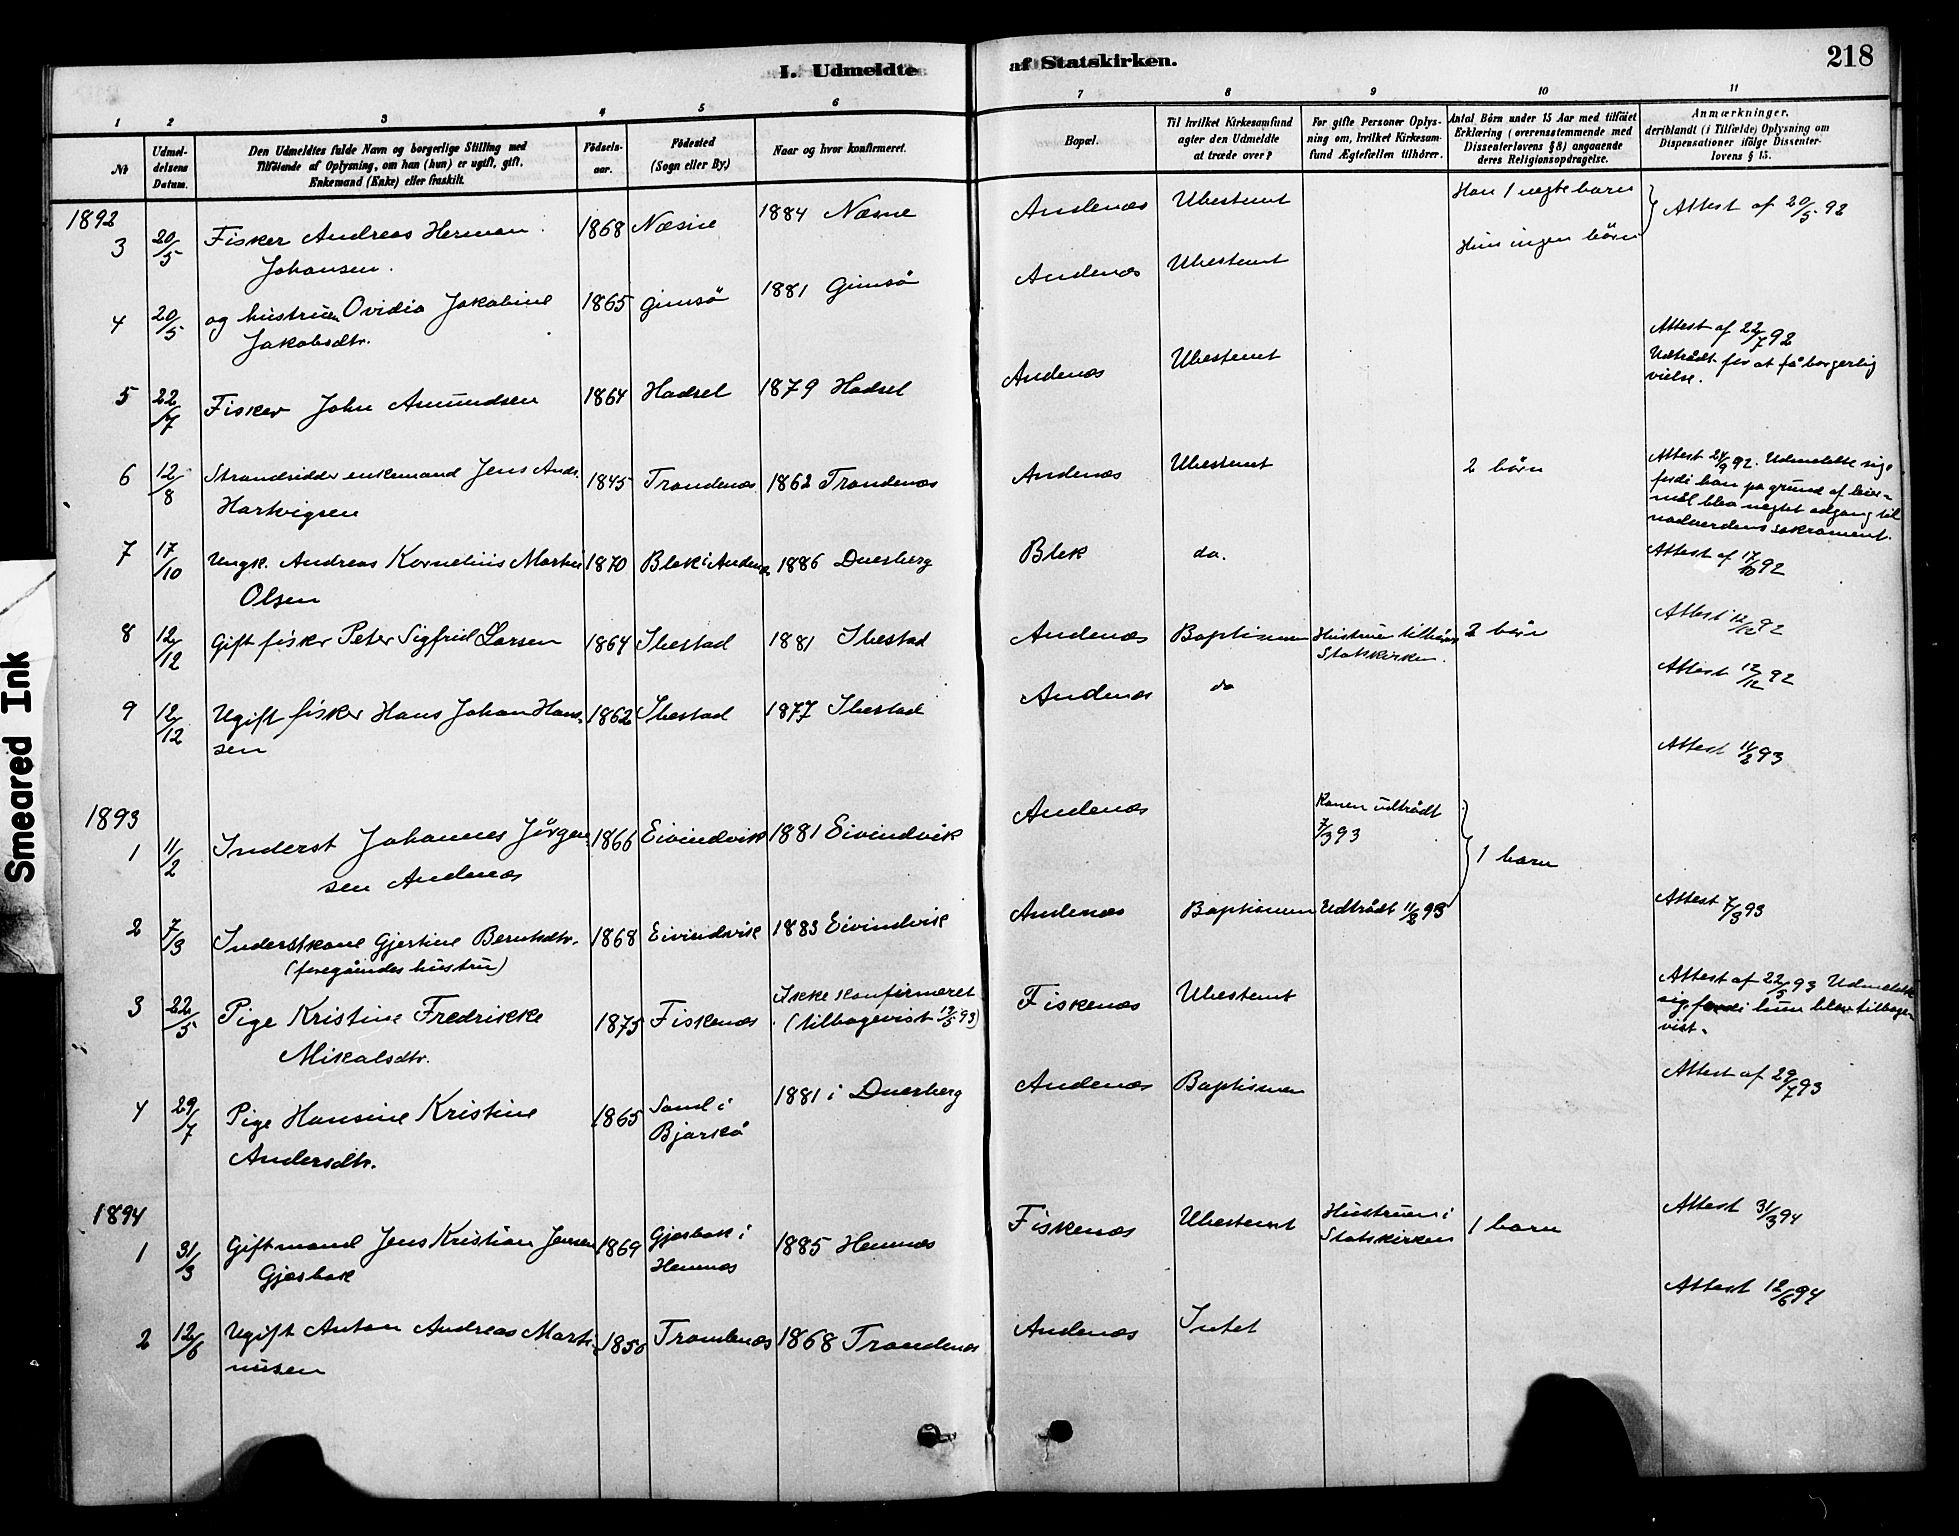 I. Udmeldte af Statskirken.
218
1 2 3 4 5 6 7 8 9 10 11
№
Udmel-
delsens
Datum.
Den Udmeldtes fulde Navn og borgerlige Stilling med
Tilföiende af Oplysning, om han (hun) er ugift, gift,
Enkemand (Enke) eller fraskilt.
Födsels-
aar.
Födested
(Sogn eller By.)
Naar og hvor konfirmeret.
Bopæl.
Til hvilket Kirkesamfund
agter den Udmeldte
at træde over?
For gifte Personer Oplys-
ning om, hvilket Kirkesam-
fund Ægtefællen tilhörer.
Antal Börn under 15 Aar med tilföiet
Erklæring (overensstemmende med
Dissenterlovens § 8) angaaende
deres Religionsopdragelse.
Anmærkninger.
deriblandt (i Tilfælde) Oplysning om
Dispensationer ifölge Dissenter-
lovens § 15.
1892
3 20/5 Fisker Andreas Herman 1868 Næsne 1884 Næsne Andenæs Ubestemt Han 1 uægte barn Attest af 20/5 92
Johansen. Hun ingen börn
4 20/5 og hustruen Ovidia Jakobine 1865 Gimsö 1881 Gimsö Andenæs Ubestemt
Jakobsdtr.
5 22/7 Fisker John Amundsen 1864 Hadsel 1879 Hadsel Andenæs Ubestemt Attest af 22/7 92
Udtrådt for at få borgerlig
vielse.
6 12/8 Strandsidder enkemand Jens Andr. 1845 Trondenæs 1862 Trondenæs Andenæs Ubestemt 2 börn Attest 24/9 92. Udmeldte sig
Hartvigsen fordi han på grund af leier-
mål blev nægtet adgang til
nadverdens sakrament.
7 17/10 Ungk. Andreas Kornelius Martin 1870 Blek i Andenæs 1886 Dverberg Blek do. Attest af 17/10 92
Olsen
8 12/12 Gift fisker Peter Sigfrid Larsen 1864 Ibestad 1881 Ibestad Andenæs Baptismen Hustruen tilhörer 2 börn Attest 12/12 92
Statskirken.
9 12/12 Ugift fisker Hans Johan Han- 1862 Ibestad 1877 Ibestad Andenæs do Attest 12/12 92
sen
1893
1 11/2 Inderst Johannes Jörgen- 1866 Eivindvik 1881 Eivindvik Andenæs Konen udtrådt 1 barn Attest 11/2 93
sen Andenæs 7/3 93
2 7/3 Inderstkone Gjertine Berntsdtr. 1868 Eivindvik 1883 Eivindvik Andenæs Baptismen Udtrådt 11/2 93 Attest 7/3 93
(foregåendes hustru)
3 22/5 Pige Kristine Fredrikke 1875 Fiskenæs Ikke konfirmeret Fiskenæs Ubestemt Attest af 22/5 93 Udmeldte
Mikalsdtr. (tilbagevist 93) sig fordi hun blev tilbage-
vist.
4 29/7 Pige Hansine Kristine 1865 Sand i 1881 i Dverberg Andenæs Baptismen Attest af 29/7 93
Andersdtr. Bjarkö
1894
1 31/3 Gift mand Jens Kristian Jensen 1869 Gjesbak i 1885 Hemnæs Fiskenæs Ubestemt Hustruen i 1 barn Attest 31/3 94
Gjesbak Hemnæs Statskirken
2 12/6 Ugift Anton Andreas Marti- 1850 Trondenæs 1868 Trondenæs Andenæs Intet Attest 12/6 94
nusen
Smeared Ink